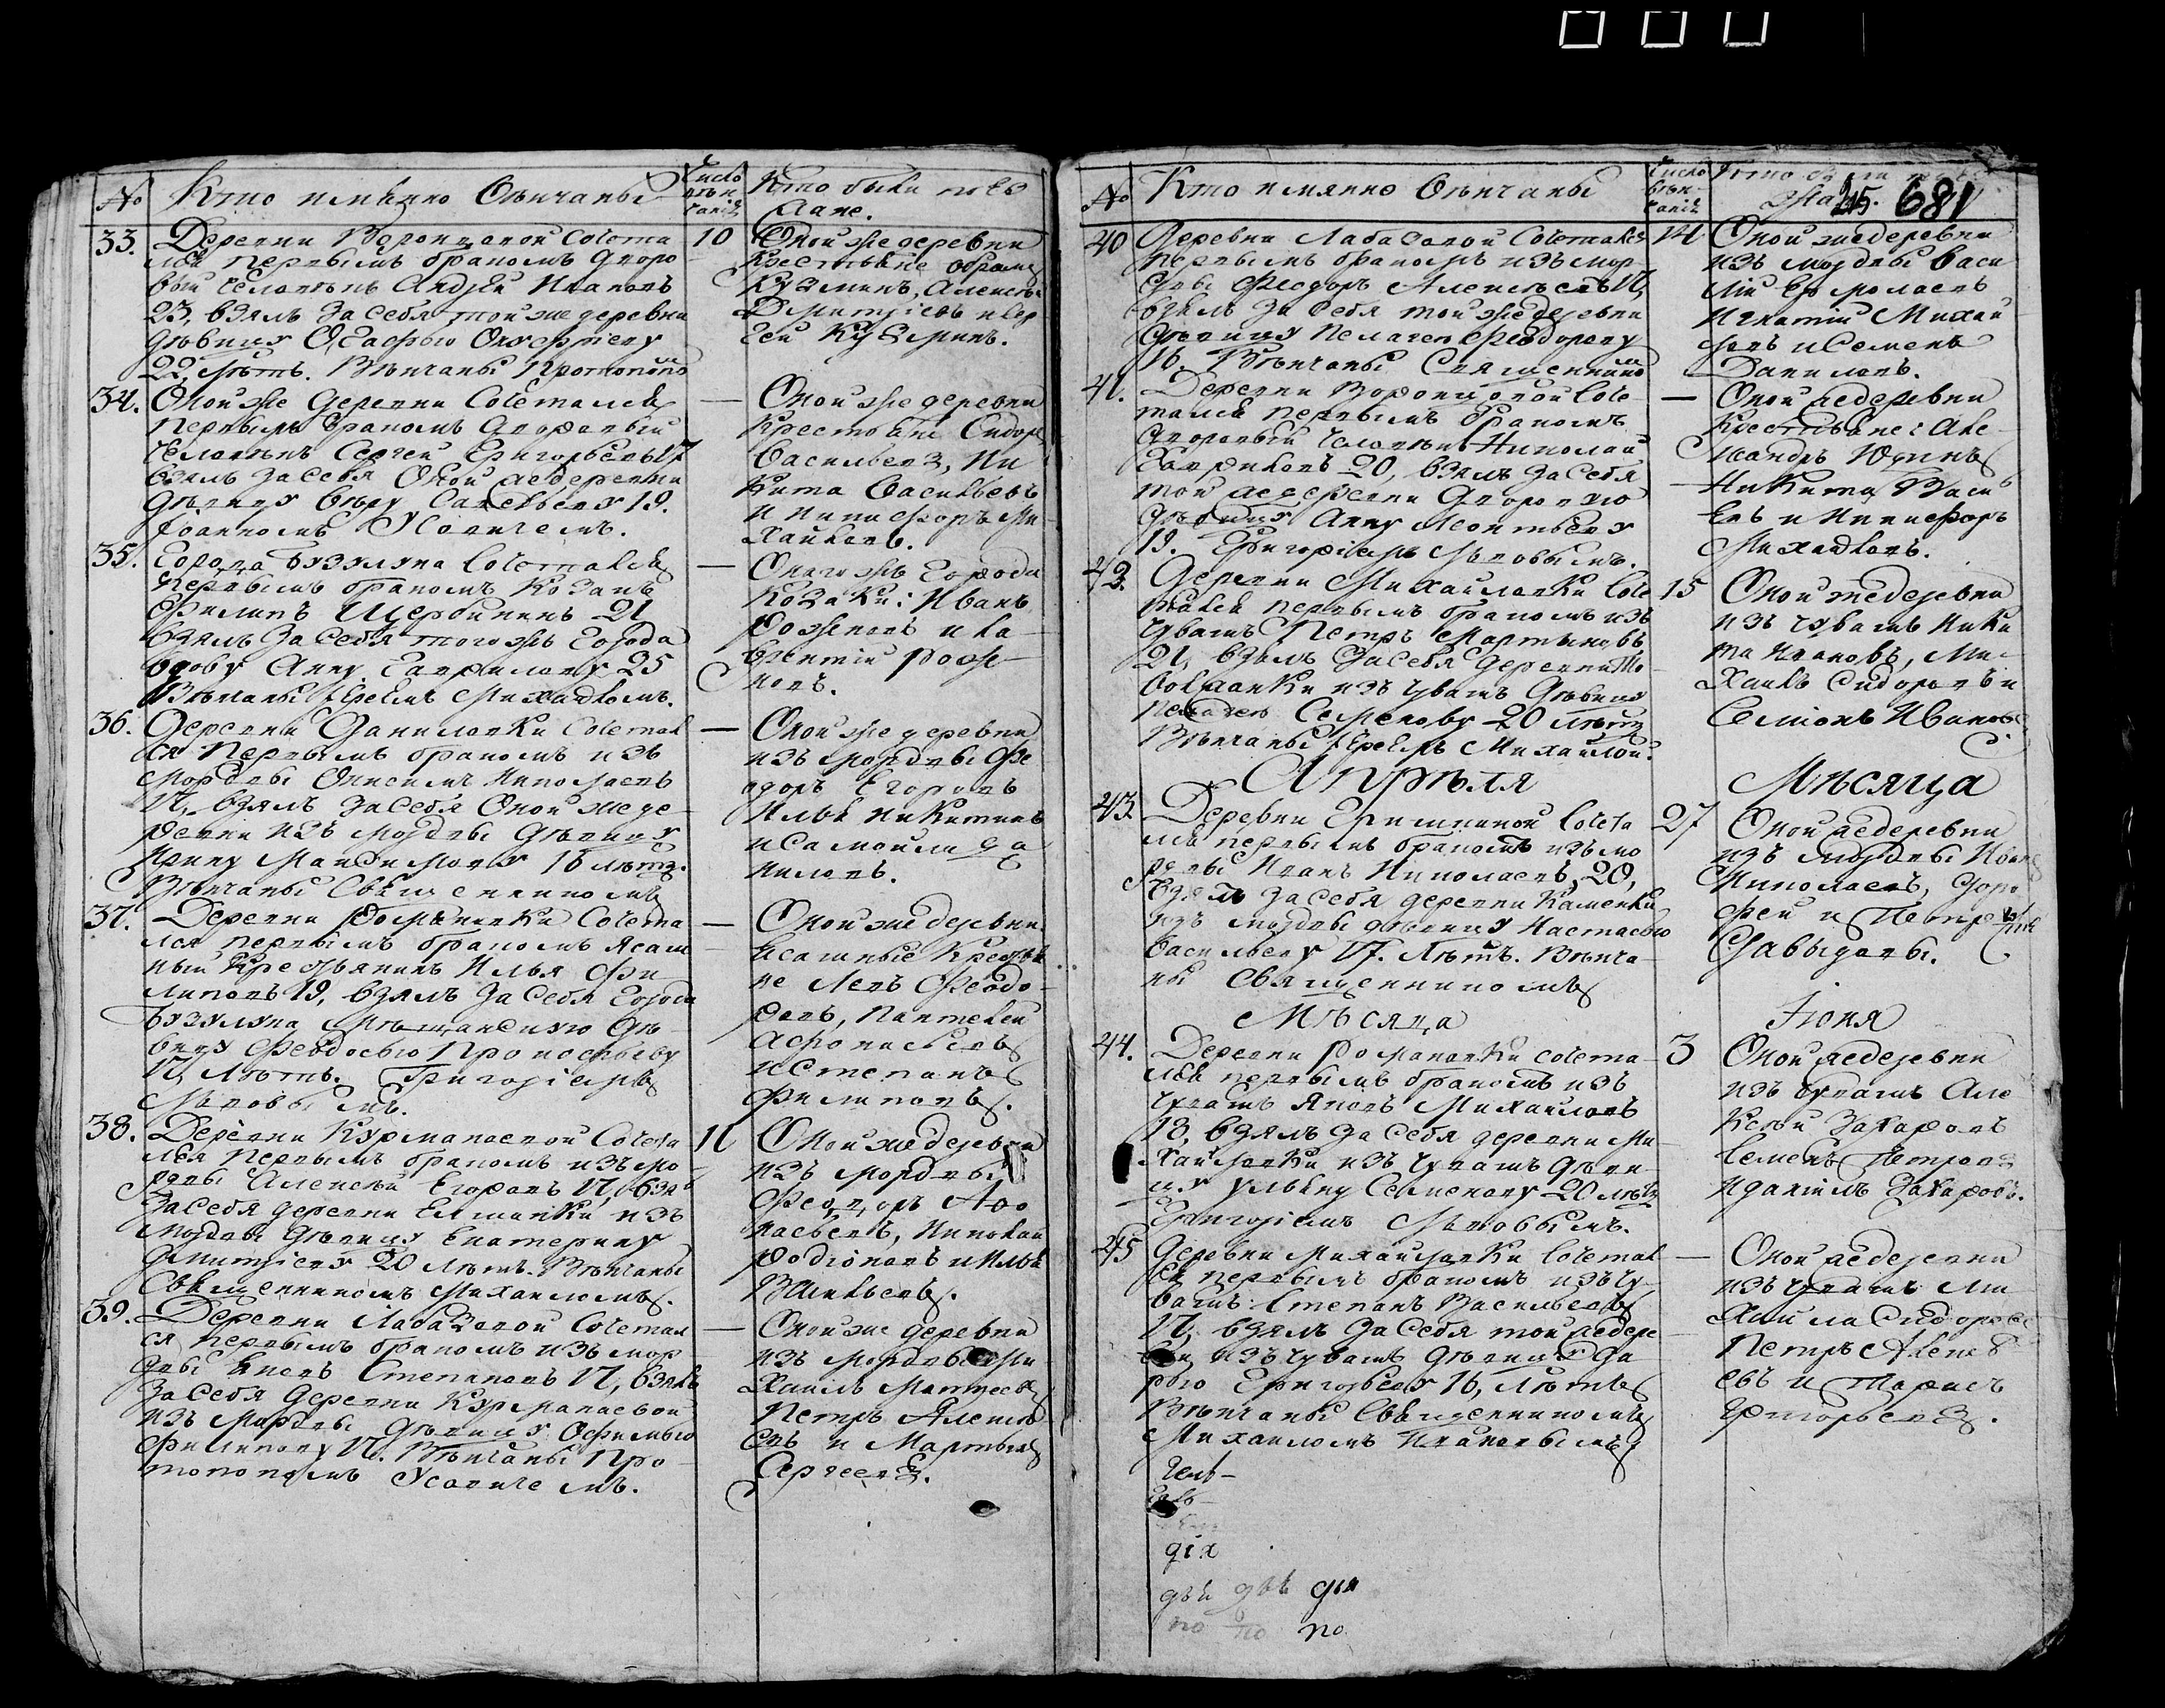 No Кто имянно Овѣнчаны
Число вѣнчанiя
Кто были поезжане.
33. Деревни Воронцовой Сочета
лся первымъ бракомъ дворо
вый человѣкъ Андрей Ивановъ
23, взялъ за Себя той же деревни
дѣвицу Агафью
22 лѣтъ. Вѣнчаны Протопопомъ
10
Оной же деревни
Крестьяне
Кузминъ, Алексѣй
Дмитрiевъ и Сер
гей Кузминъ.
34. Оной же деревни Сочетался
первымъ бракомъ дворовый
человѣкъ Сергей Григорьевъ 17
взялъ за себя Оной же деревни
дѣвицу Вѣру Савельеву 19.
Iоанномъ Усовичемъ.
—
Оной же деревни
Крестьяне Сидоръ
Васильевъ, Ни
кита Васильевъ
и Никифоръ Ми
хайловъ.
35. Города Бузулука Сочетался
первымъ бракомъ Козакъ
Филипъ Щербининъ 21
взялъ за себя того жъ Города
вдову Анну Гаврилову 25
Вѣнчаны Iереемъ Михайломъ.
—
Онаго жъ Города
Козаки: Иванъ
Роженовъ и Ла
врентiй Роже
новъ.
36. Деревни Даниловки Сочетал
ся первымъ бракомъ изъ
мордвы Онисимъ Николаевъ
17, взялъ за себя Оной же де
ревни изъ мордвы дѣвицу
Ирину Максимову 16 лѣтъ.
Вѣнчаны Священникомъ
—
Оной же деревни
изъ мордвы Фе
одоръ Егоровъ
Илья Никитинъ
и Самойла Да
ниловъ.
37. Деревни Романовки Сочета
лся первымъ бракомъ Ясаш
ный Крестьянинъ Илья Фи
липовъ 19, взялъ за Себя Города
Бузулука Мѣщанскую дѣ
вицу Феодосью Прокофьеву
17, лѣтъ. Григорiемъ
Львовымъ.
—
Оной же деревни
Ясашные Крестья
не Левъ Феодо
ровъ, Пантелей
Афонасьевъ
и Степанъ
Филиповъ.
38. Деревни Курманаевой Сочета
лся первымъ бракомъ изъ мо
рдвы Алексѣй Егоровъ 17, взялъ
за себя деревни Елшанки изъ
мордвы дѣвицу Екатерину
Дмитрiеву 20 лѣтъ. Вѣнчаны
Священникомъ Михаиломъ.
11
Оной же деревни
изъ мордвы
Феодоръ Афо
насьевъ, Николай
Родiоновъ и Илья
Васильевъ.
39. Деревни Лабазовой Сочетал
ся первымъ бракомъ изъ мор
двы Яковъ Степановъ 17, взялъ
за себя деревни Курманаевой
изъ Мордвы дѣвицу Офимью
Филипову 17. Вѣнчаны Про
топопомъ Усовичемъ.
—
Оной же деревни
изъ мордвы Ми
хаилъ Матвеевъ
Петръ Алексѣ
евъ и Мартынъ
Сергеевъ.
No Кто имянно Овѣнчаны
Число вѣнчанiя
Кто были поезжане.
215 681
40 Деревни Лабазовой Сочетался
первымъ бракомъ изъ мор
двы Феодоръ Алексѣевъ 17,
взялъ за себя той же деревни
дѣвицу Пелагею Феодорову
16. Вѣнчаны Священникомъ
14
Оной же деревни
изъ мордвы Васи
лiй Ермолаевъ
Игнатiй Михай
ловъ и Семенъ
Даниловъ.
41. Деревни Воронцовой Соче
тался первымъ бракомъ
дворовый человѣкъ Николай
Гавриловъ 20, взялъ за Себя
той же деревни дворовую
дѣвицу Анну Леонтьеву
19. Григорiемъ Львовымъ.
—
Оной же деревни
Крестьяне: Але
ксандръ Юдинъ
Никита Василь
евъ и Никифоръ
Михайловъ.
42. Деревни Михайловки Соче
тался первымъ бракомъ изъ
чувашъ Петръ Мартыновъ
21, взялъ за себя деревни То
волжанки изъ чувашъ дѣвицу
Пелагею Семенову 20 лѣтъ
Вѣнчаны Iереемъ Михайлом.
15
Оной же деревни
изъ чувашъ Ники
та Ивановъ, Ми
хаилъ Сидоровъ и
Семiонъ Ивановъ
Апрѣля Мѣсяца
43. Деревни Гришкиной Сочета
лся первымъ бракомъ изъ мо
рдвы Иванъ Николаевъ 20,
взялъ за себя деревни Каменки
изъ мордвы дѣвицу Настасью
Васильеву 17. Лѣтъ. Вѣнча
ны Священникомъ
27
Оной же деревни
изъ мордвы Иванъ
Николаевъ, Доро
фей и Петръ
Давыдовы.
Мѣсяца Iюня
44. Деревни Романовки сочета
лся первымъ бракомъ изъ
чувашъ Яковъ Михайловъ
18, взялъ за себя деревни Ми
хайловки изъ чувашъ дѣви
цу Ульяну Семенову 20 лѣтъ
Григорiемъ Львовымъ.
3
Оной же деревни
изъ чувашъ Але
ксѣй Захаровъ
Семенъ Петровъ
и Данiилъ Захаровъ.
45 Деревни Михайловки Сочетал
ся первымъ бракомъ изъ чу
вашъ Степанъ Васильевъ
17, взялъ за Себя той же дере
вни изъ чувашъ дѣвицу Да
рью Григорьеву 16, лѣтъ
Вѣнчаны Священникомъ
Михаиломъ Ивановымъ
—
Оной же деревни
изъ чувашъ Ми
хайла Сидоровъ
Петръ Алексѣ
евъ и Тарасъ
Григорьевъ.
дѣи дѣѣ дѣи
по по по